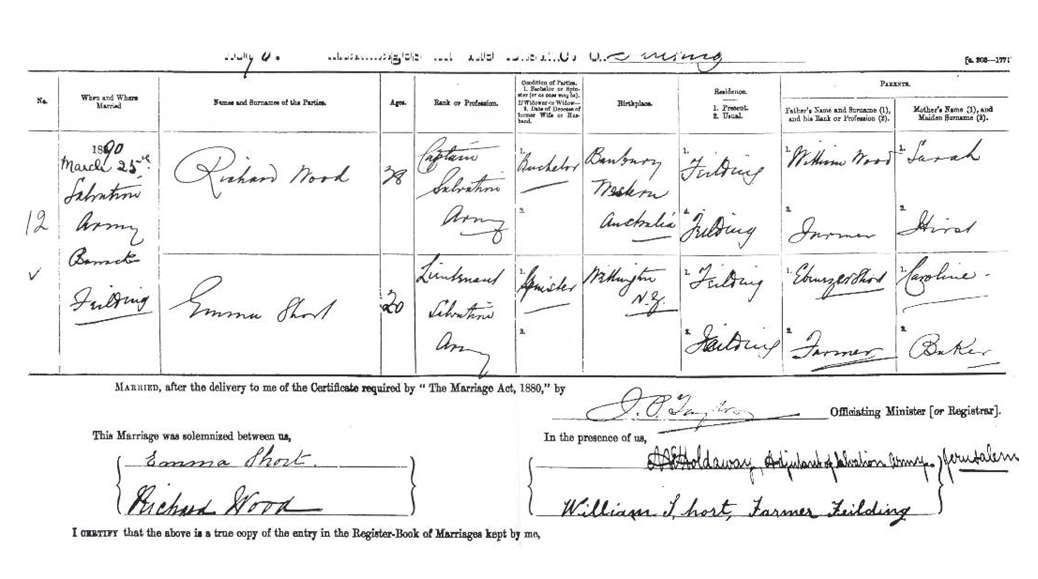 [a. 308—177]
No.
When and Where Married
Names and Surnames of the Parties.
Ages.
Rank or Profession.
Condition of Parties.
1. Bachelor or Spinster (or as case may be).
If Widower or Widow—
2. Date of Decease of former Wife or Husband.
Birthplace.
Residence.
1. Present.
2. Usual.
PARENTS.
Father's Name and Surname (1), and his Rank or Profession (2).
Mother's Name (1), and Maiden Surname (2).
12
1890
March 25th
Salvation
Army
Barracks
Feilding
Richard Wood
28
Captain
Salvation
Army
1. Bachelor
2.
Western
Australia
1. Feilding
2. Feilding
1. William Wood
2. Farmer
1. Sarah
2. Hirst
Emma Short
20
Lieutenant
Salvation
Army
1. Spinster
2.
Wellington
N.Z.
1. Feilding
2. Feilding
1. Ebenezer Short
2. Farmer
1. Caroline
2. Baker
MARRIED, after the delivery to me of the Certificate required by "The Marriage Act, 1880," by
Officiating Minister [or Registrar].
This Marriage was solemnized between us,
Emma Short.
Richard Wood
In the presence of us,
Holdaway, Adjutant of Salvation Army, Jerusalem
William Short, Farmer Feilding
I CERTIFY that the above is a true copy of the entry in the Register-Book of Marriages kept by me,